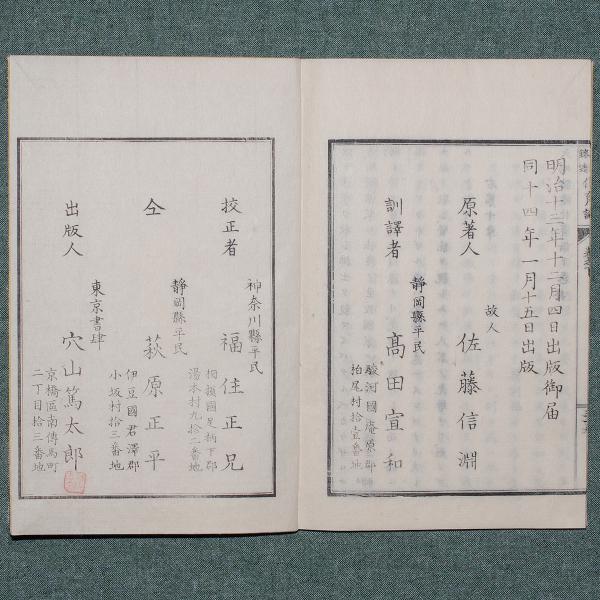 明治十三年十二月四日出版御届
同十四年一月十五日出版
故人
原著人 佐藤信淵
静岡縣平民
訓譯者 髙田宜和
駿河國庵原郡
柏尾村拾壹番地
神奈川縣平民
校正者 福住正兄
相摸國足柄下郡
湯本村九拾二番地
静岡縣平民
仝 萩原正平
伊豆國君澤郡
小坂村拾三番地
東京書肆
出版人 穴山篤太郎
京橋區南傳馬町
二丁目拾三番地